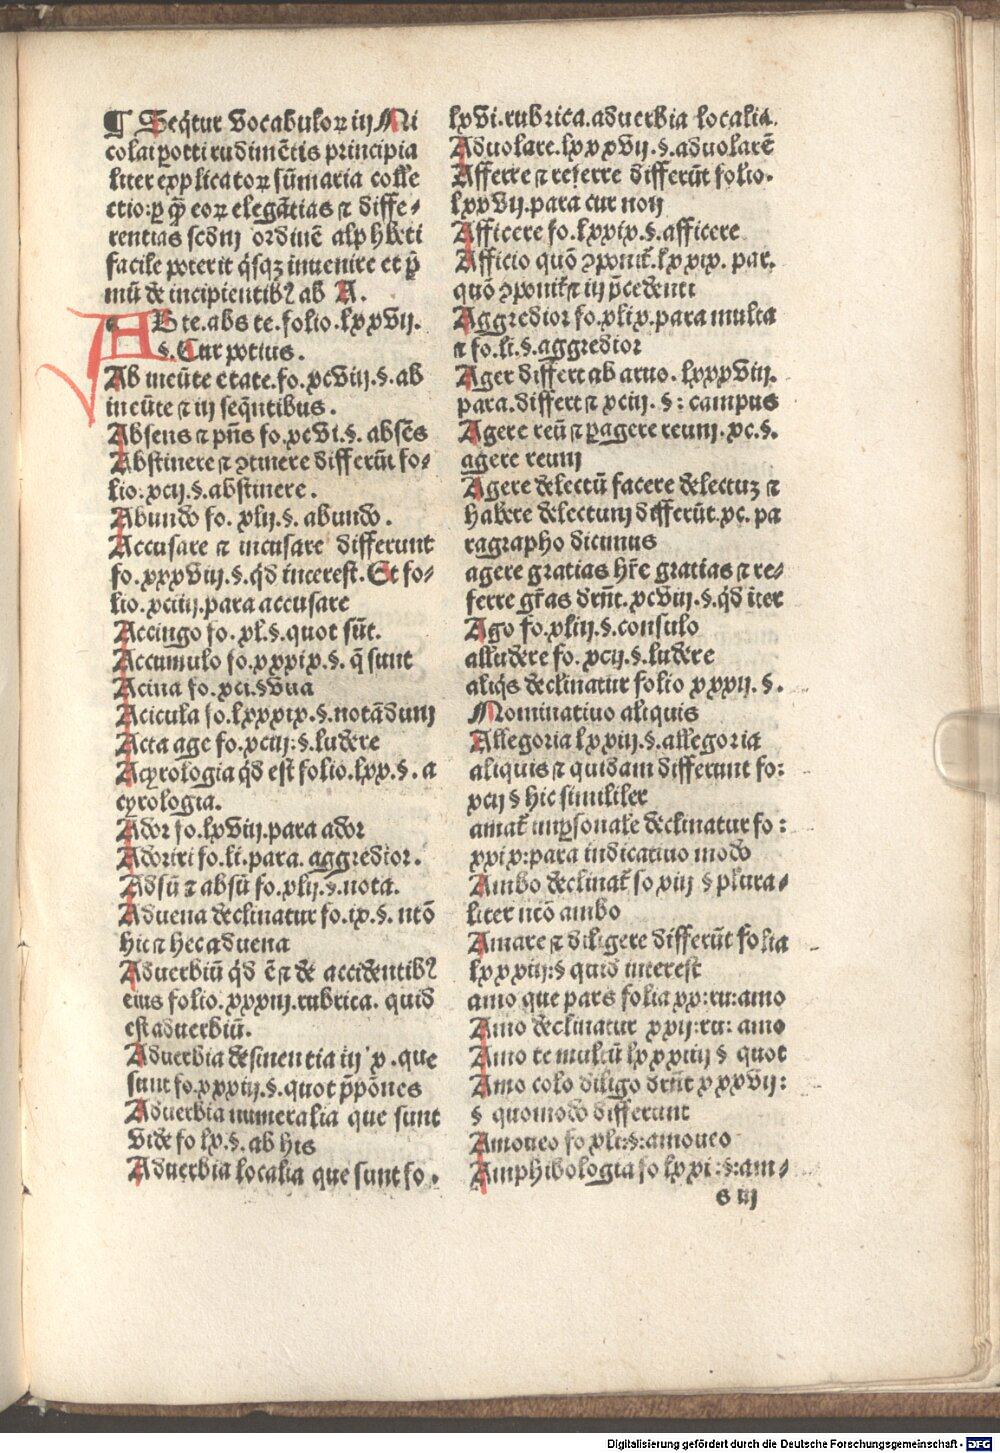 ¶ Seq̄tur Vocabuloꝝ in Ni
colai ꝑotti rudimētis principia
liter explicatoꝝ sūmaria colle
ctio: ꝑ q̄ eoꝝ elegātias ⁊ diffe⸗
rentias scdm ordinē alphabeti
facile poterit q́sqꝫ inuenire et p̄
mū de incipientibꝰ ab A.
ABte. abs te. folio. lxxvij.
§. Cur potius.
Ab ineūte etate. fo. xcviij. §. ab
ineūte ⁊ in seq̄ntibus.
Absens ⁊ pn̄s fo. xcvi. §. absēs
Abstinere ⁊ ꝯtinere differūt fo⸗
lio: xcij. §. abstinere.
Abundo fo. xlij. §. abundo.
Accusare ⁊ incusare differunt
fo. xxxviij. §. q́d interest. Et fo⸗
lio. xciiij. para accusare
Accingo fo. xl. §. quot sūt.
Accumulo fo. xxxix. §. q̄ sunt
Acina fo. xci. § vua
Acicula fo. lxxxix. §. notādum
Acta age fo. xciij: §. ludere
Acyrologia q́d est folio. lxx. §. a
cyrologia.
Ador fo. lxviij. para ador
Adoriri fo. li. para. aggredior.
Adsū ⁊ absū fo. xlij. §. nota.
Aduena declinatur fo. ix. §. ntō
hic ⁊ hec aduena
Aduerbiū q́d ē ⁊ de accidentibꝰ
eius folio. xxxiij. rubrica. quid
est aduerbiū.
Aduerbia desinentia in x. que
sunt fo. xxxiij. §. quot p̄pōnes
Aduerbia numeralia que sunt
vide fo lx. §. ab his
Aduerbia localia que sunt fo.
lxvi. rubrica. aduerbia localia.
Aduolare. lxxxvij. §. aduolarē
Afferre ⁊ referre differūt folio.
lxxvij. para cur non
Afficere fo. lxxix. §. afficere
Afficio quō ꝯponit̄. lxxix. par.
quō ꝯponit̄ ⁊ in p̄cedenti
Aggredior fo. xlix. para multa
⁊ fo. li. §. aggredior
Ager differt ab aruo. lxxxviij.
para. differt ⁊ xciij. §: campus
Agere reū ⁊ ꝑagere reum. xc. §.
agere reum
Agere delectū facere delectuꝫ ⁊
habere delectum differūt. xc. pa
ragrapho dicimus
agere gratias hr̄e gratias ⁊ re⸗
ferre gr̄as drn̄t. xcviij. §. q́d iter
Ago fo. xliij. §. consulo
alludere fo. xcij. §. ludere
aliq́s declinatur folio xxxij. §.
Nominatiuo aliquis
Allegoria lxxiij. §. allegoria
aliquis ⁊ quidam differunt fo:
xcij § hic similiter
amat̄ imꝑsonale declinatur fo:
xxix: para indicatiuo modo
Ambo declinat̄ fo xiij § plura⸗
liter ntō ambo
Amare ⁊ diligere differūt folia
lxxxiij: § quid interest
amo que pars folia xx: ru: amo
Amo declinatur xxij: ru: amo
Amo te multū lxxxiiij § quot
Amo colo diligo drn̄t xxxvij:
§ quomodo differunt
Amoueo fo xli: §: amoueo
Amphibologia fo lxxi: §: am⸗
s iij
Digitalisierung gefördert durch die Deutsche Forschungsgemeinschaft - DFG